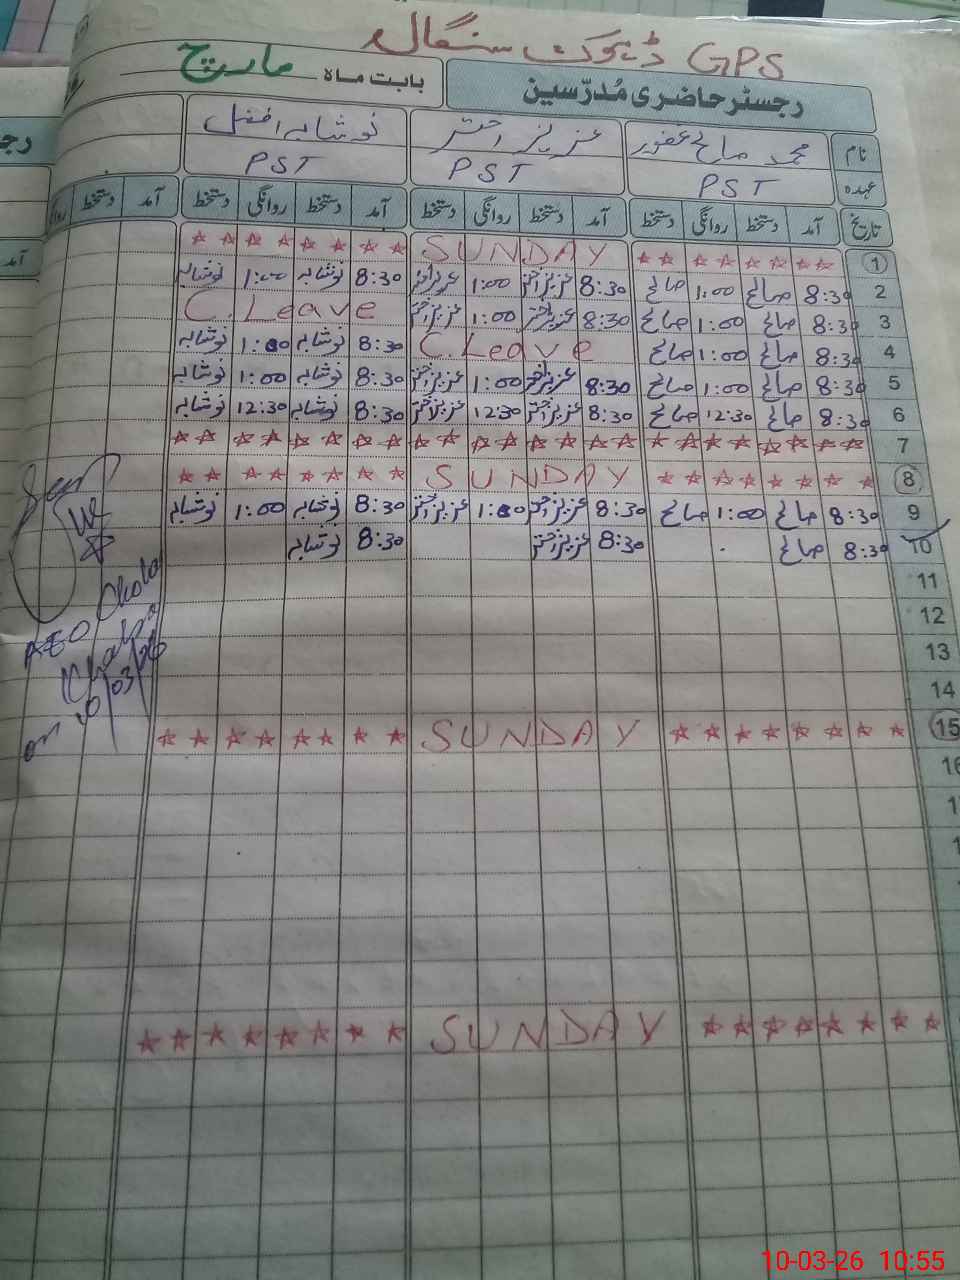 GPS ڈھوک سنگال
رجسٹر حاضری مُدرّسین بابت ماہ مارچ
نام محمد صالح غفور عزیز اختر نوشابہ افضل
عہدہ PST PST PST
تاریخ آمد دستخط روانگی دستخط آمد دستخط روانگی دستخط آمد دستخط روانگی دستخط آمد دستخط
1 ☆☆☆☆☆☆☆ SUNDAY ☆☆☆☆☆☆☆☆
2 8:30 صالح 1:00 صالح 8:30 عزیز اختر 1:00 عزیز اختر 8:30 نوشابہ 1:00 نوشابہ
3 8:30 صالح 1:00 صالح 8:30 عزیز اختر 1:00 عزیز اختر C.Leave
4 8:30 صالح 1:00 صالح C.Leave 8:30 نوشابہ 1:00 نوشابہ
5 8:30 صالح 1:00 صالح 8:30 عزیز اختر 1:00 عزیز اختر 8:30 نوشابہ 1:00 نوشابہ
6 8:30 صالح 12:30 صالح 8:30 عزیز اختر 12:30 عزیز اختر 8:30 نوشابہ 12:30 نوشابہ
7 ☆☆☆☆☆☆☆☆ ☆☆☆☆☆☆☆☆ ☆☆☆☆☆☆☆☆
8 ☆☆☆☆☆☆☆ SUNDAY ☆☆☆☆☆☆☆☆
9 8:30 صالح 1:00 صالح 8:30 عزیز اختر 1:00 عزیز اختر 8:30 نوشابہ 1:00 نوشابہ
10 8:30 صالح 8:30 عزیز اختر 8:30 نوشابہ
11
12
13
14
15 ☆☆☆☆☆☆☆☆ SUNDAY ☆☆☆☆☆☆☆☆
16
☆☆☆☆☆☆☆☆ SUNDAY ☆☆☆☆☆☆☆☆
AEO
on 10/03/26
10-03-26 10:55